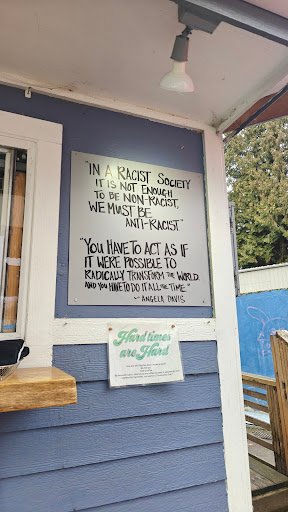 "IN A RACIST SOCIETY
IT IS NOT ENOUGH
TO BE NON-RACIST,
WE MUST BE
ANTI-RACIST"
"YOU HAVE TO ACT AS IF
IT WERE POSSIBLE TO
RADICALLY TRANSFORM THE WORLD.
AND YOU HAVE TO DO IT ALL THE TIME."
- ANGELA DAVIS
Hard times
are Hard